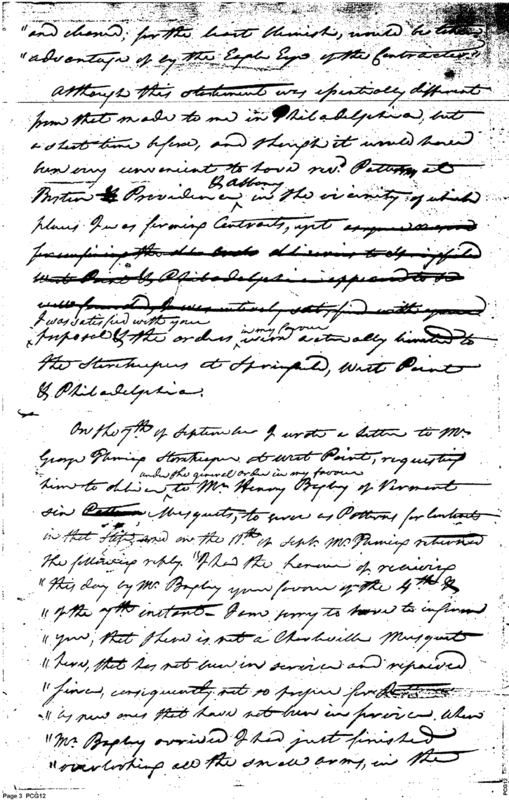 "and cleaned, for the least blemish, would be taken
"advantage of by the Eagle Eyes of the Contractors"
Although this statement was essentially different
from that made to me in Philadelphia, but
a short time before, and though it would have
been very convenient to have recd. Patterns at
& Albany
Boston & Providence, in the vicinity of which
places I was forming Contracts, yet
for confining the deliveries to Springfield
West Point & Philadelphia appeared to be
well founded, I was entirely satisfied with your
I was satisfied with your
in my favour
proposal & the orders, were actually limited to
the Storekeepers at Springfield, West Point
& Philadelphia.
On the 7th of September I wrote a letter to Mr.
George Fleming Storekeeper at West Point, requesting
under the general order in my favour
him to deliver, to Mr. Henry Bagley of Vermont
six Pattern Musquets, to serve as Patterns for Contracts
in that State, and on the 11th of Sept. Mr. Fleming returned
the following reply. "I had the honour of receiving
"this day by Mr. Bagley your favour of the 4th &
"of the 7th instant - I am sorry to have to inform
"you, that there is not a Charleville Musquet
"here, that has not been in service and repaired
"since, consequently not so proper for
"as new ones that have not been in service. When
"Mr. Bagley arrived I had just finished
"overlooking all the small arms, in the
Page 3 PCG12
PCG12